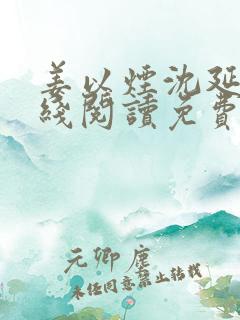 姜以煙沈延
綫閱讀免費
元卿塵
未经同意禁止转载